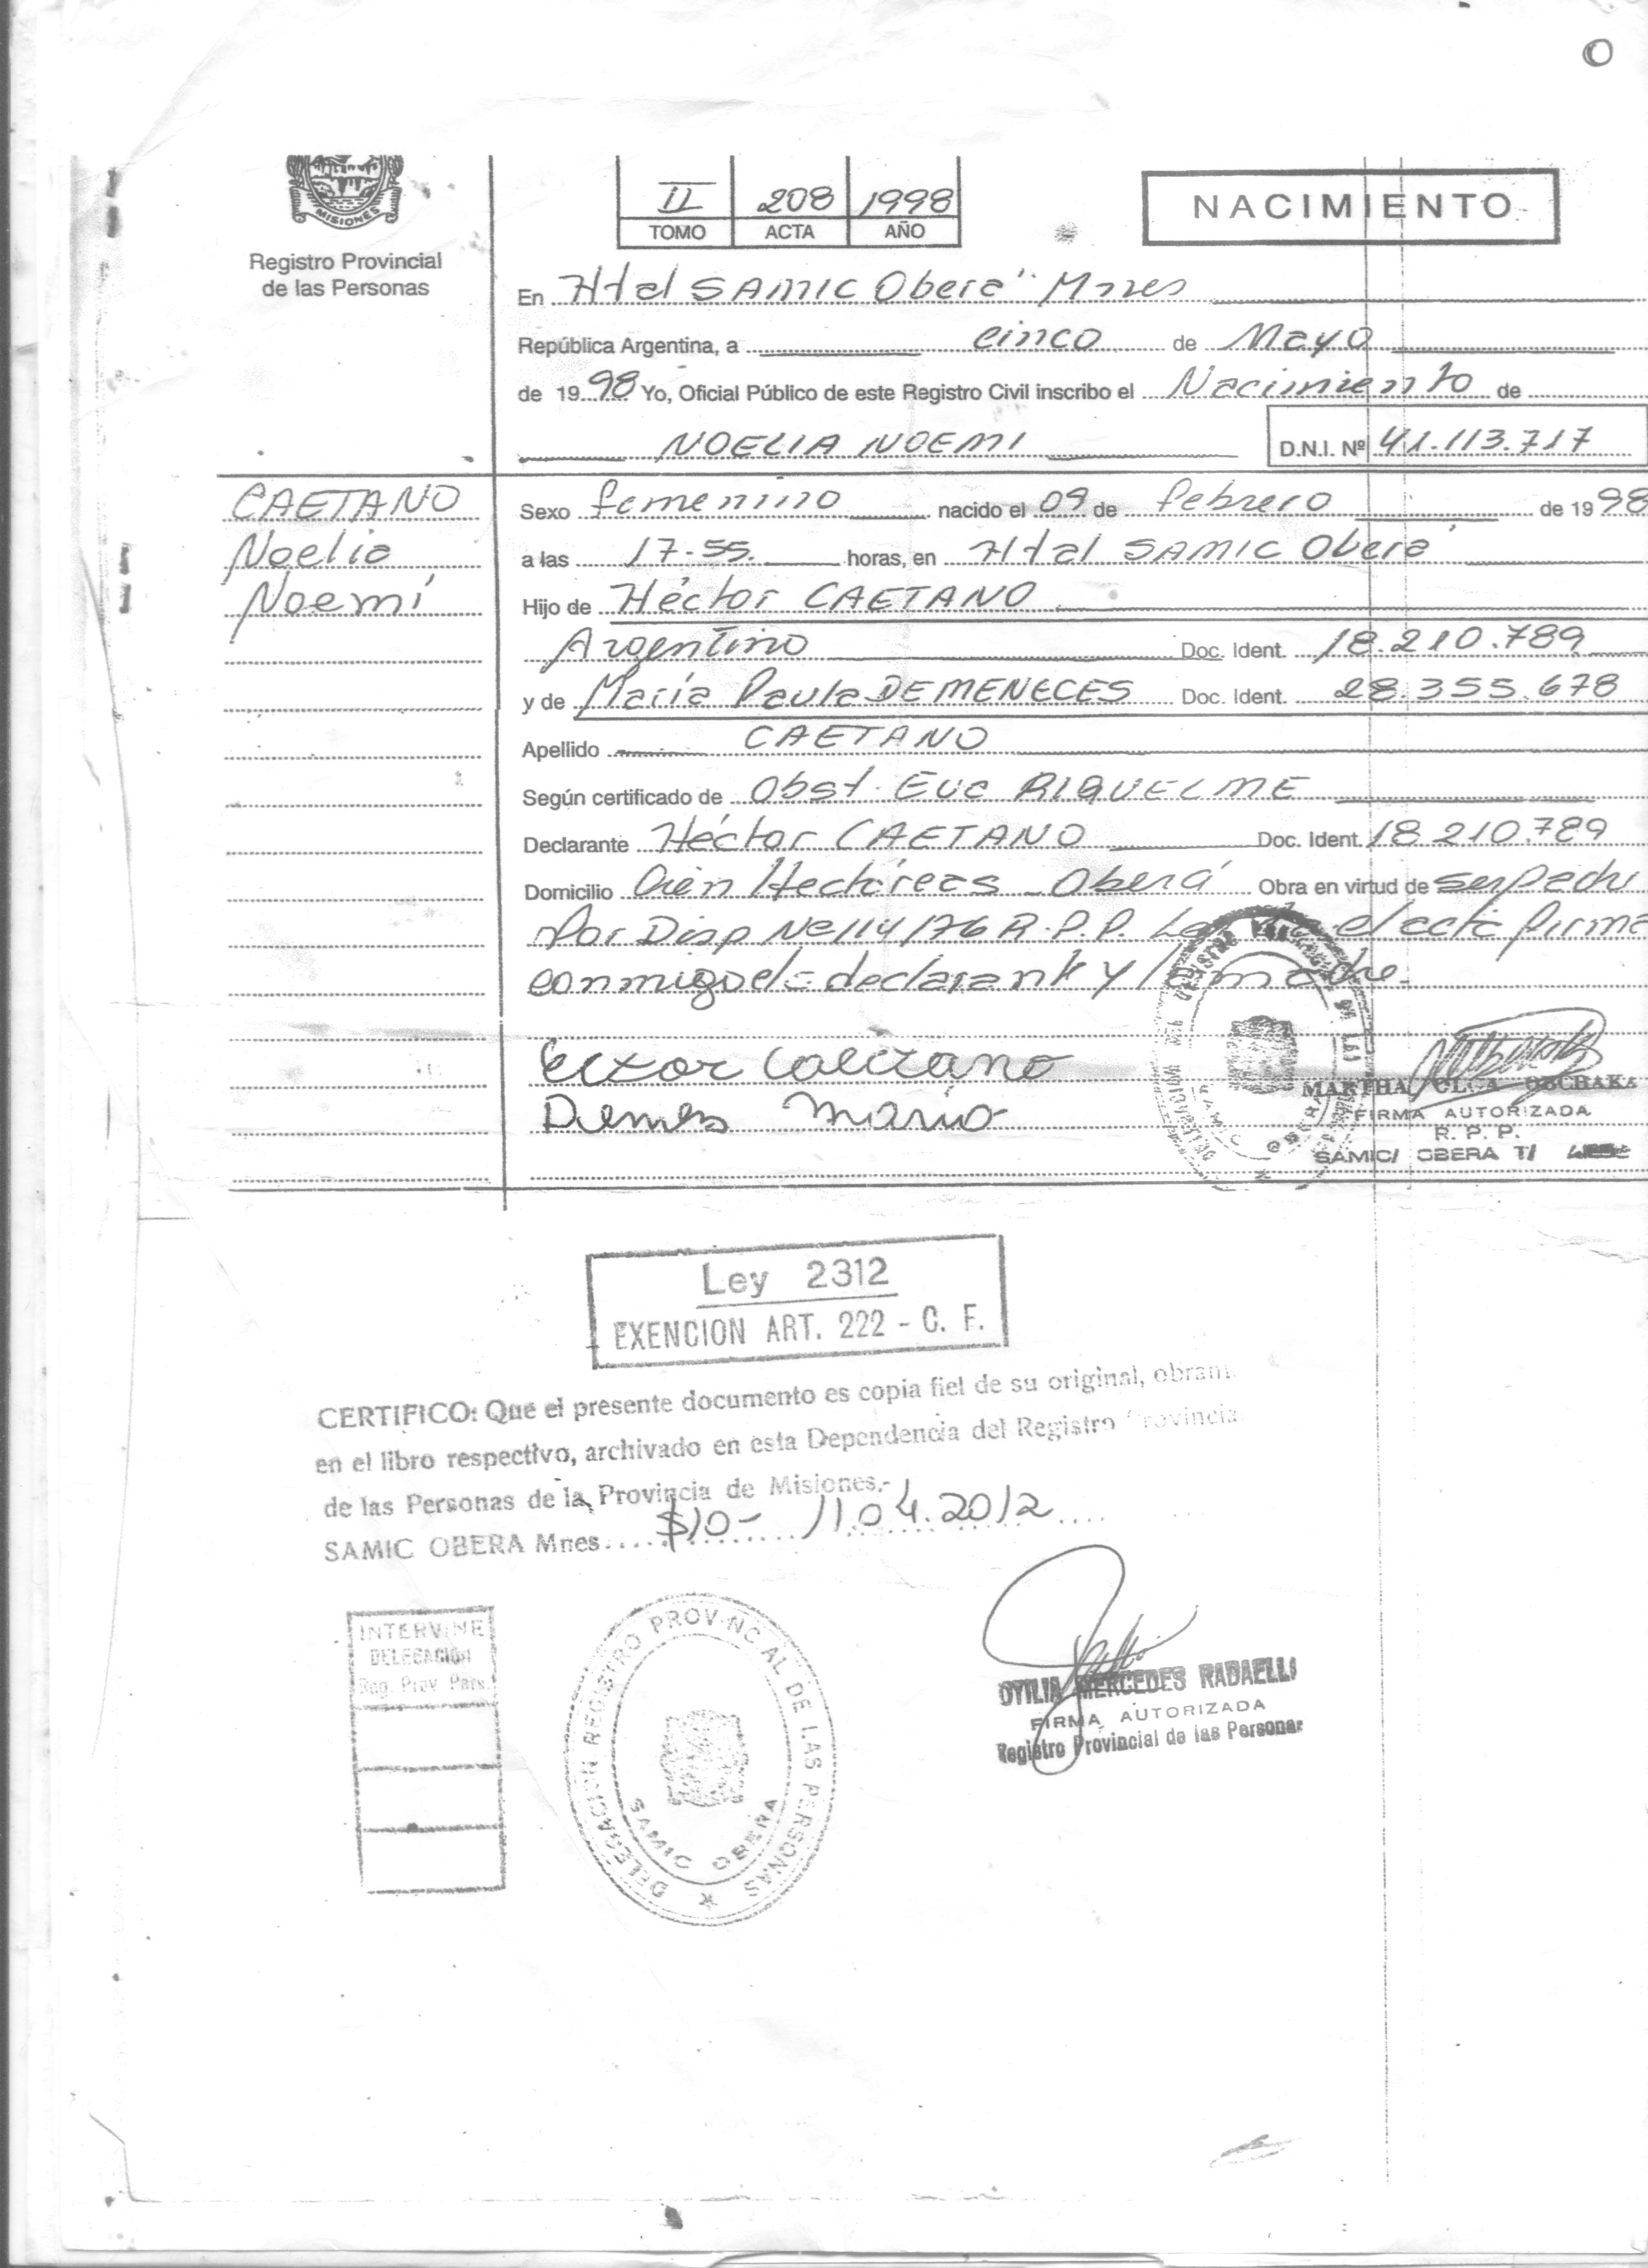 O
MISIONES
Registro Provincial
de las Personas
II 208 1998
TOMO ACTA AÑO
NACIMIENTO
En Htal SAMIC Oberá Mnes
República Argentina, a cinco de Mayo
de 1998 Yo, Oficial Público de este Registro Civil inscribo el Nacimiento de
NOELIA NOEMI D.N.I. Nº 41.113.717
CAETANO
Noelia
Noemí
Sexo femenino nacido el 09 de febrero de 1998
a las 17-55. horas, en Htal SAMIC Oberá
Hijo de Héctor CAETANO
Argentino Doc. Ident. 18.210.789
y de María Paula DE MENECES Doc. Ident. 28.355.678
Apellido CAETANO
Según certificado de Obst. Eva RIQUELME
Declarante Héctor CAETANO Doc. Ident. 18.210.789
Domicilio Cién Hectáreas - Oberá Obra en virtud de ser padre
Por Disp Nº 114/76 R.P.P. el acta firma
conmigo el declarante y la madre.
Caetano
MARTHA OLGA
FIRMA AUTORIZADA
R. P. P.
SAMIC/ OBERA T/
Ley 2312
EXENCION ART. 222 - C. F.
CERTIFICO: Que el presente documento es copia fiel de su original, obran
en el libro respectivo, archivado en esta Dependencia del Registro Provincia
de las Personas de la Provincia de Misiones.-
SAMIC OBERA Mnes..... $10- 11.04.2012
INTERVINE
DELEGACION
Reg. Prov. Pers.
DELEGACION REGISTRO PROVINCIAL DE LAS PERSONAS
SAMIC OBERA
OTILIA MERCEDES RADAELLI
FIRMA AUTORIZADA
Registro Provincial de las Personas